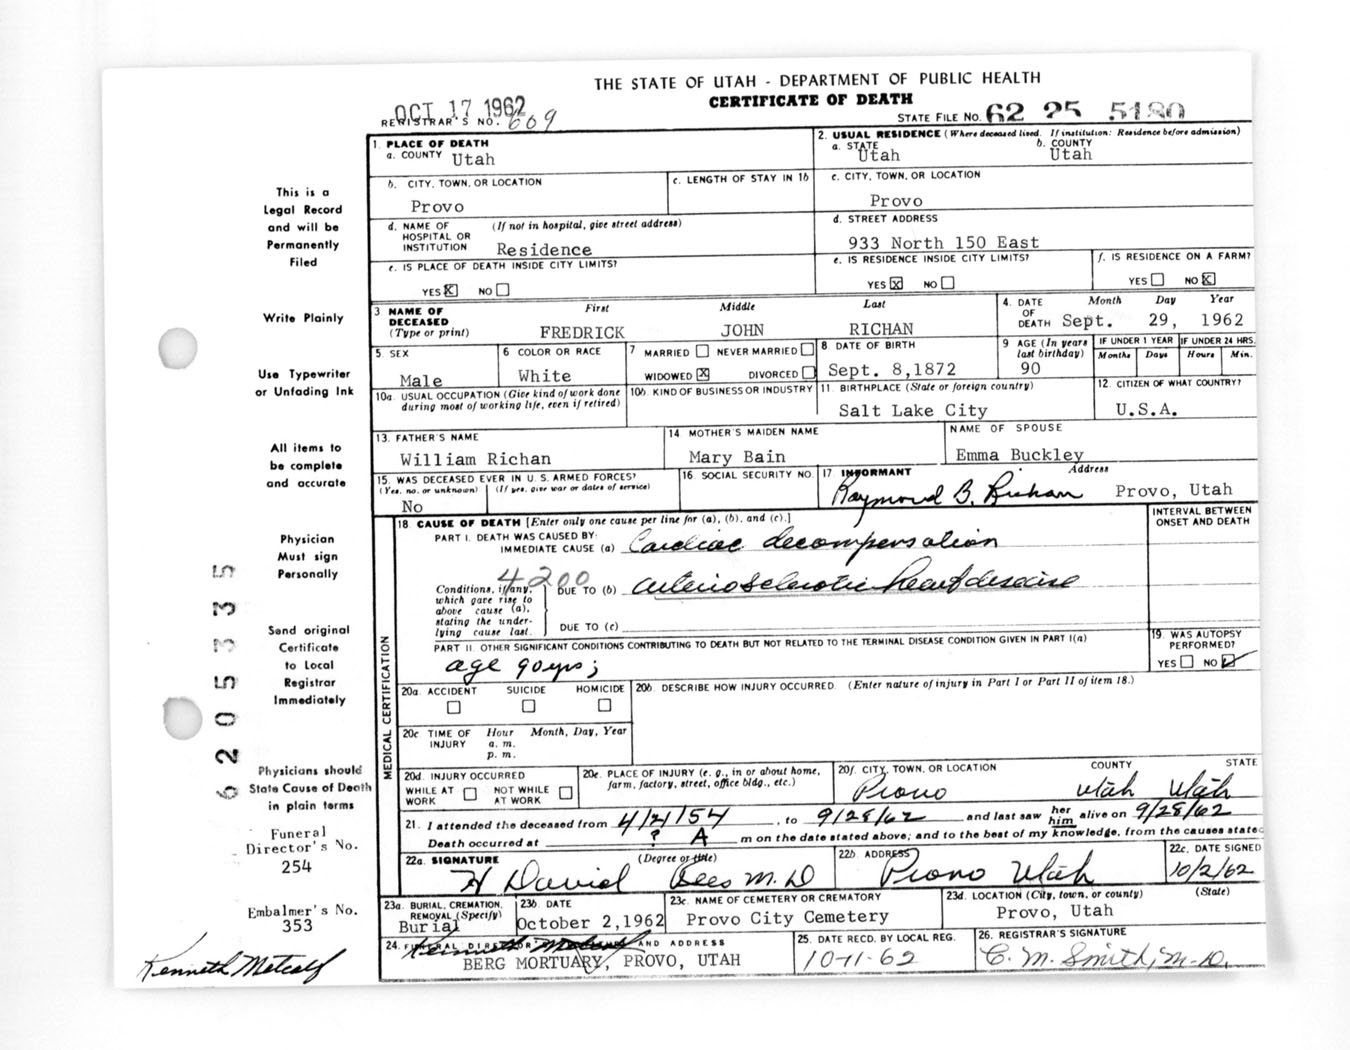 THE STATE OF UTAH - DEPARTMENT OF PUBLIC HEALTH
CERTIFICATE OF DEATH
OCT 17 1962
REGISTRAR'S NO. 609
STATE FILE NO. 62 25 5180
1. PLACE OF DEATH
a. COUNTY Utah
2. USUAL RESIDENCE (Where deceased lived. If institution: Residence before admission)
a. STATE Utah
b. COUNTY Utah
b. CITY, TOWN, OR LOCATION
Provo
c. LENGTH OF STAY IN 1b
c. CITY, TOWN, OR LOCATION
Provo
d. NAME OF HOSPITAL OR INSTITUTION (If not in hospital, give street address)
Residence
d. STREET ADDRESS
933 North 150 East
e. IS PLACE OF DEATH INSIDE CITY LIMITS?
YES X NO
e. IS RESIDENCE INSIDE CITY LIMITS?
YES X NO
f. IS RESIDENCE ON A FARM?
YES NO X
3 NAME OF DECEASED (Type or print)
First Middle Last
FREDRICK JOHN RICHAN
4. DATE OF DEATH Month Day Year
Sept. 29, 1962
5. SEX
Male
6 COLOR OR RACE
White
7 MARRIED NEVER MARRIED
WIDOWED X DIVORCED
8 DATE OF BIRTH
Sept. 8,1872
9 AGE (In years last birthday)
90
IF UNDER 1 YEAR Months Days
IF UNDER 24 HRS. Hours Min.
10a. USUAL OCCUPATION (Give kind of work done during most of working life, even if retired)
10b. KIND OF BUSINESS OR INDUSTRY
11. BIRTHPLACE (State or foreign country)
Salt Lake City
12. CITIZEN OF WHAT COUNTRY?
U.S.A.
13. FATHER'S NAME
William Richan
14. MOTHER'S MAIDEN NAME
Mary Bain
NAME OF SPOUSE
Emma Buckley
15. WAS DECEASED EVER IN U.S. ARMED FORCES?
(Yes, no, or unknown) (If yes, give war or dates of service)
No
16. SOCIAL SECURITY NO.
17. INFORMANT Address
Raymond B. Richan Provo, Utah
18. CAUSE OF DEATH [Enter only one cause per line for (a), (b), and (c).]
INTERVAL BETWEEN ONSET AND DEATH
PART I. DEATH WAS CAUSED BY:
IMMEDIATE CAUSE (a) Cardiac decompensation
4200
Conditions, if any, which gave rise to above cause (a), stating the underlying cause last.
DUE TO (b) arteriosclerotic heart disease
DUE TO (c)
PART II. OTHER SIGNIFICANT CONDITIONS CONTRIBUTING TO DEATH BUT NOT RELATED TO THE TERMINAL DISEASE CONDITION GIVEN IN PART I(a)
age 90 yrs;
19. WAS AUTOPSY PERFORMED?
YES NO
MEDICAL CERTIFICATION
20a. ACCIDENT SUICIDE HOMICIDE
20b. DESCRIBE HOW INJURY OCCURRED. (Enter nature of injury in Part I or Part II of item 18.)
20c. TIME OF INJURY Hour Month, Day, Year
a. m.
p. m.
20d. INJURY OCCURRED
WHILE AT WORK NOT WHILE AT WORK
20e. PLACE OF INJURY (e. g., in or about home, farm, factory, street, office bldg., etc.)
20f. CITY, TOWN, OR LOCATION COUNTY STATE
Provo Utah Utah
21. I attended the deceased from 4/2/54, to 9/28/62 and last saw her him alive on 9/28/62
Death occurred at ? A m on the date stated above; and to the best of my knowledge, from the causes state
22a. SIGNATURE (Degree or title)
H David Rees M.D
22b. ADDRESS
Provo Utah
22c. DATE SIGNED
10/2/62
23a. BURIAL, CREMATION, REMOVAL (Specify)
Burial
23b. DATE
October 2,1962
23c. NAME OF CEMETERY OR CREMATORY
Provo City Cemetery
23d. LOCATION (City, town, or county) (State)
Provo, Utah
24. FUNERAL DIRECTOR'S AND ADDRESS
Kenneth Metcalf
BERG MORTUARY, PROVO, UTAH
25. DATE RECD. BY LOCAL REG.
10-11-62
26. REGISTRAR'S SIGNATURE
C. M. Smith, M.D.
This is a
Legal Record
and will be
Permanently
Filed
Write Plainly
Use Typewriter
or Unfading Ink
All items to
be complete
and accurate
Physician
Must sign
Personally
Send original
Certificate
to Local
Registrar
Immediately
Physicians should
State Cause of Death
in plain terms
Funeral
Director's No.
254
Embalmer's No.
353
Kenneth Metcalf
62053335